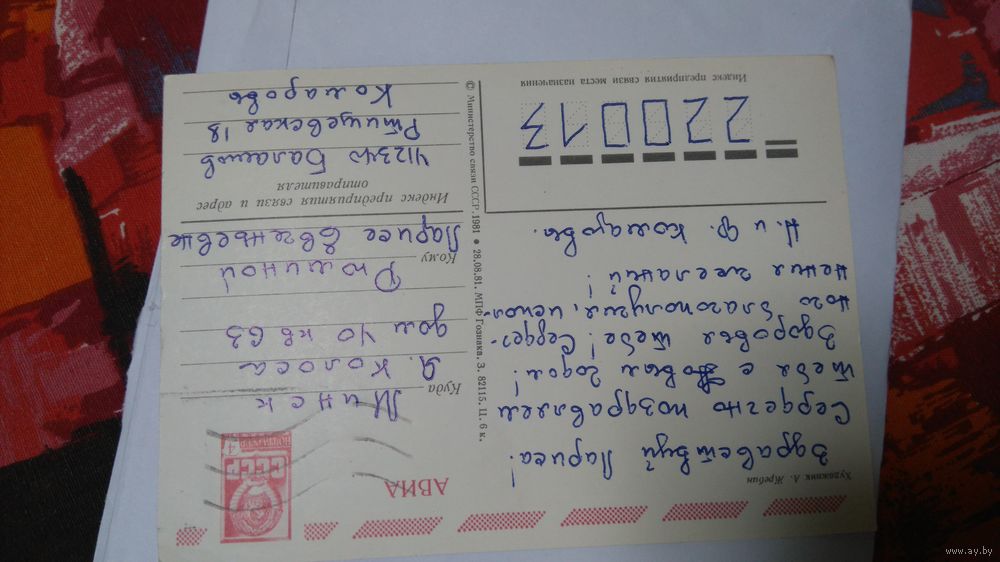 АВИА
ПОЧТА СССР
4
СССР
Художник Л. Жребин
Здравствуй Лариса!
Сердечно поздравляем
тебя с Новым годом!
Здоровья тебе! Сердеч-
ного благополучия, испол-
нения желаний!
Н. и Ф. Комаровы.
Куда
Минск
Я. Коласа
дом 40 кв 63
Кому
Рюминой
Ларисе Евгеньевне
Индекс предприятия связи и адрес
отправителя
412340 Балашов
Ртищевская 18
Комаровы
© Министерство связи СССР. 1981 • 28.08.81. МПФ Гознака. З. 82115. Ц. 6 к.
220013
Индекс предприятия связи места назначения
www.ay.by